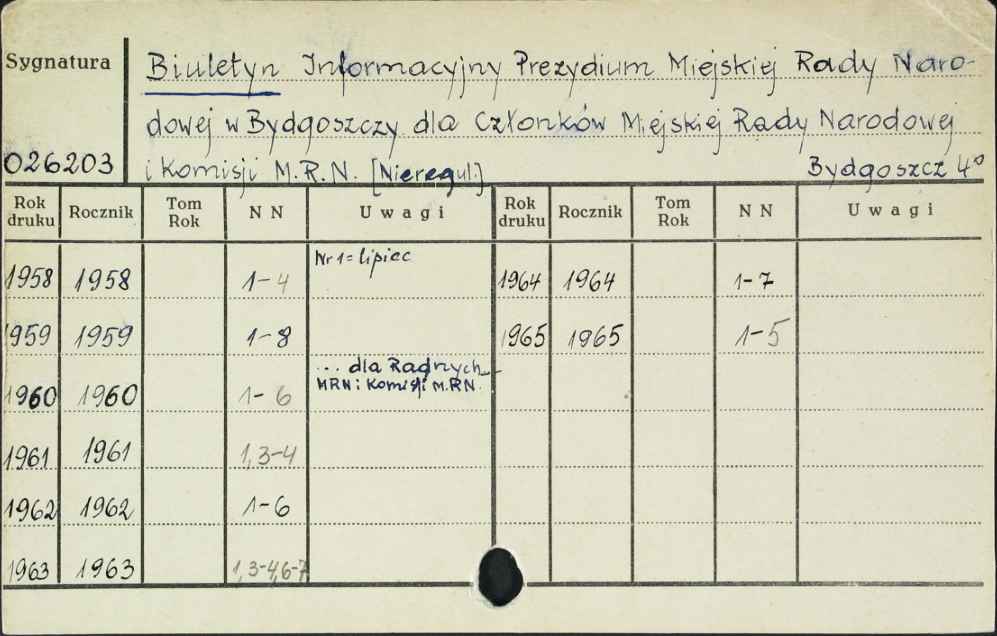 Sygnatura
Biuletyn Informacyjny Prezydium Miejskiej Rady Naro-
dowej w Bydgoszczy dla Członków Miejskiej Rady Narodowej
026203
i Komisji M.R.N. [Nieregul.]
Bydgoszcz 4°
Rok druku Rocznik Tom Rok NN Uwagi Rok druku Rocznik Tom Rok NN Uwagi
Nr 1 = lipiec
1958 1958 1-4 1964 1964 1-7
1959 1959 1-8 1965 1965 1-5
... dla Radnych
MRN i Komisji M.RN.
1960 1960 1-6
1961 1961 1,3-4
1962 1962 1-6
1963 1963 1,3-4,6-7